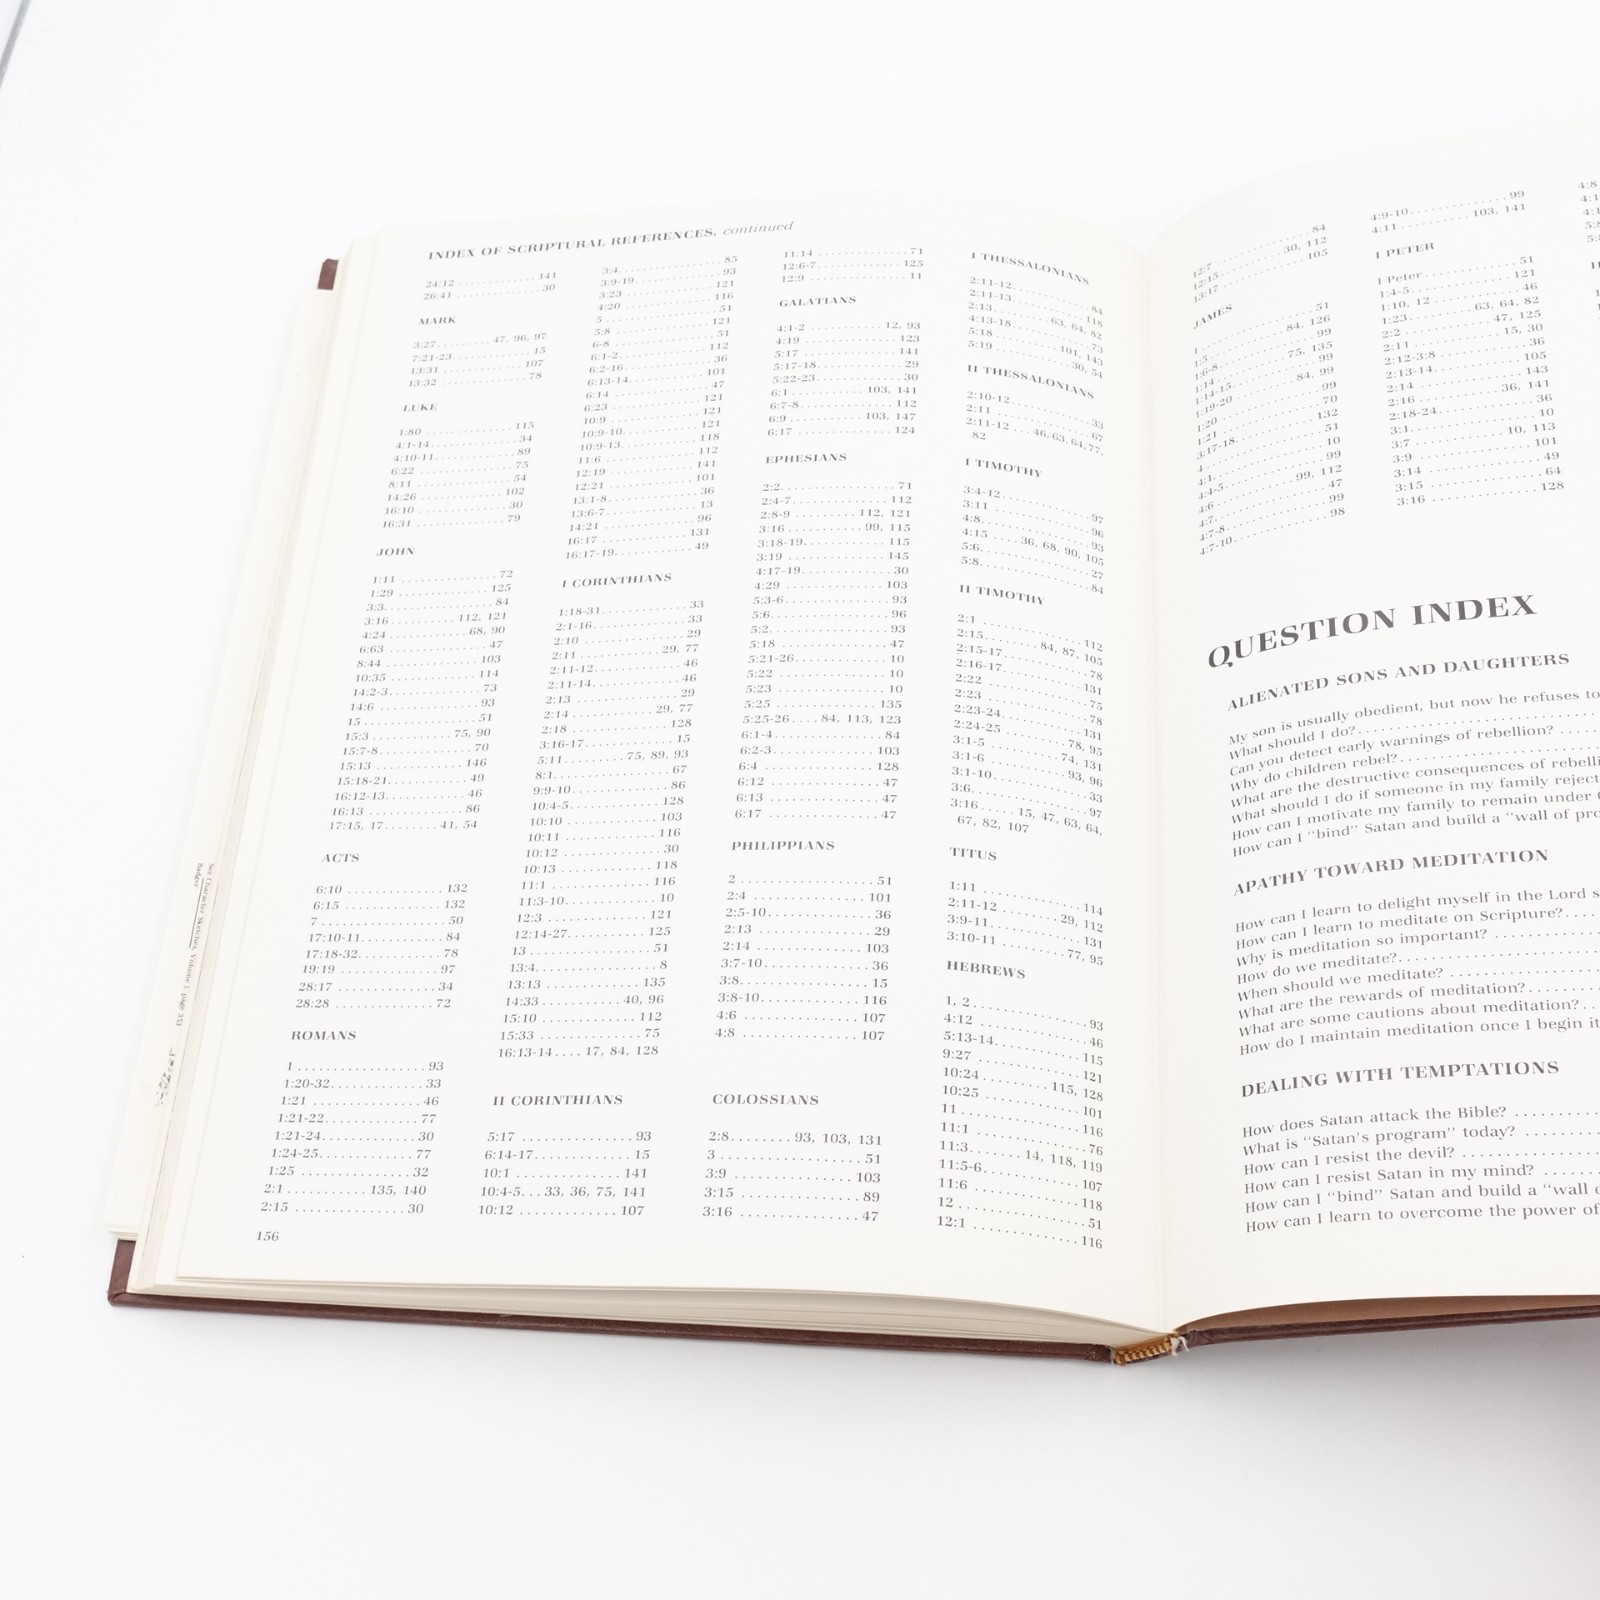 INDEX OF SCRIPTURAL REFERENCES, continued
24:12 . . . . . . . . . . . . . . . 141
26:41 . . . . . . . . . . . . . . . . 30
MARK
3:27 . . . . . . . . . 47, 96, 97
7:21-23 . . . . . . . . . . . . . 15
13:31 . . . . . . . . . . . . . . 107
13:32 . . . . . . . . . . . . . . . 78
LUKE
1:80 . . . . . . . . . . . . . . . 115
4:1-14 . . . . . . . . . . . . . . 34
4:10-11 . . . . . . . . . . . . . 89
6:22 . . . . . . . . . . . . . . . . 75
8:11 . . . . . . . . . . . . . . . . 54
14:26 . . . . . . . . . . . . . . 102
16:10 . . . . . . . . . . . . . . . 30
16:31 . . . . . . . . . . . . . . . 79
JOHN
1:11 . . . . . . . . . . . . . . . . 72
1:29 . . . . . . . . . . . . . . . 125
3:3 . . . . . . . . . . . . . . . . . 84
3:16 . . . . . . . . . . . 112, 121
4:24 . . . . . . . . . . . . . 68, 90
6:63 . . . . . . . . . . . . . . . . 47
8:44 . . . . . . . . . . . . . . . 103
10:35 . . . . . . . . . . . . . . 114
14:2-3 . . . . . . . . . . . . . . 73
14:6 . . . . . . . . . . . . . . . . 93
15 . . . . . . . . . . . . . . . . . . 51
15:3 . . . . . . . . . . . . . 75, 90
15:7-8 . . . . . . . . . . . . . . 70
15:13 . . . . . . . . . . . . . . 146
15:18-21 . . . . . . . . . . . . 49
16:12-13 . . . . . . . . . . . . 46
16:13 . . . . . . . . . . . . . . . 86
17:15, 17 . . . . . . . . 41, 54
ACTS
6:10 . . . . . . . . . . . . . . 132
6:15 . . . . . . . . . . . . . . 132
7 . . . . . . . . . . . . . . . . . . 50
17:10-11 . . . . . . . . . . . . 84
17:18-32 . . . . . . . . . . . . 78
19:19 . . . . . . . . . . . . . . . 97
28:17 . . . . . . . . . . . . . . . 34
28:28 . . . . . . . . . . . . . . . 72
ROMANS
1 . . . . . . . . . . . . . . . . . . 93
1:20-32 . . . . . . . . . . . . . 33
1:21 . . . . . . . . . . . . . . . . 46
1:21-22 . . . . . . . . . . . . . 77
1:21-24 . . . . . . . . . . . . . 30
1:24-25 . . . . . . . . . . . . . 77
1:25 . . . . . . . . . . . . . . . . 32
2:1 . . . . . . . . . . . . 135, 140
2:15 . . . . . . . . . . . . . . . . 30
3:4 . . . . . . . . . . . . . . . . . 85
3:9-19 . . . . . . . . . . . . . . 93
3:23 . . . . . . . . . . . . . . . 121
4:20 . . . . . . . . . . . . . . . 116
5 . . . . . . . . . . . . . . . . . . 51
5:8 . . . . . . . . . . . . . . . . 121
6-8 . . . . . . . . . . . . . . . . . 51
6:1-2 . . . . . . . . . . . . . . 112
6:2-16 . . . . . . . . . . . . . . 36
6:13-14 . . . . . . . . . . . . 101
6:14 . . . . . . . . . . . . . . . . 47
6:23 . . . . . . . . . . . . . . . 121
10:9 . . . . . . . . . . . . . . . 121
10:9-10 . . . . . . . . . . . . 121
10:9-13 . . . . . . . . . . . . 118
11:6 . . . . . . . . . . . . . . . 112
12:19 . . . . . . . . . . . . . . 141
12:21 . . . . . . . . . . . . . . 101
13:1-8 . . . . . . . . . . . . . . 36
13:6-7 . . . . . . . . . . . . . . 13
14:21 . . . . . . . . . . . . . . . 96
16:17 . . . . . . . . . . . . . . 131
16:17-19 . . . . . . . . . . . . 49
I CORINTHIANS
1:18-31 . . . . . . . . . . . . . 33
2:1-16 . . . . . . . . . . . . . . 33
2:10 . . . . . . . . . . . . . . . . 29
2:11 . . . . . . . . . . . . . 29, 77
2:11-12 . . . . . . . . . . . . . 46
2:11-14 . . . . . . . . . . . . . 46
2:13 . . . . . . . . . . . . . . . . 29
2:14 . . . . . . . . . . . . . 29, 77
2:18 . . . . . . . . . . . . . . . 128
3:16-17 . . . . . . . . . . . . . 15
5:11 . . . . . . . . . 75, 89, 93
8:1 . . . . . . . . . . . . . . . . . 67
9:9-10 . . . . . . . . . . . . . . 86
10:4-5 . . . . . . . . . . . . . 128
10:10 . . . . . . . . . . . . . . 103
10:11 . . . . . . . . . . . . . . 116
10:12 . . . . . . . . . . . . . . . 30
10:13 . . . . . . . . . . . . . . 118
11:1 . . . . . . . . . . . . . . . 116
11:3-10 . . . . . . . . . . . . . 10
12:3 . . . . . . . . . . . . . . . 121
12:14-27 . . . . . . . . . . . 125
13 . . . . . . . . . . . . . . . . . 51
13:4 . . . . . . . . . . . . . . . . . 8
13:13 . . . . . . . . . . . . . . 135
14:33 . . . . . . . . . . . . 40, 96
15:10 . . . . . . . . . . . . . . 112
15:33 . . . . . . . . . . . . . . . 75
16:13-14 . . . . 17, 84, 128
II CORINTHIANS
5:17 . . . . . . . . . . . . . . . . 93
6:14-17 . . . . . . . . . . . . . 15
10:1 . . . . . . . . . . . . . . . 141
10:4-5 . . . 33, 36, 75, 141
10:12 . . . . . . . . . . . . . . 107
11:14 . . . . . . . . . . . . . . . 71
12:6-7 . . . . . . . . . . . . . 125
12:9 . . . . . . . . . . . . . . . . 11
GALATIANS
4:1-2 . . . . . . . . . . . . 12, 93
4:19 . . . . . . . . . . . . . . . 123
5:17 . . . . . . . . . . . . . . . 141
5:17-18 . . . . . . . . . . . . . 29
5:22-23 . . . . . . . . . . . . . 30
6:1 . . . . . . . . . . . . 103, 141
6:7-8 . . . . . . . . . . . . . . 112
6:9 . . . . . . . . . . . . 103, 147
6:17 . . . . . . . . . . . . . . . 124
EPHESIANS
2:2 . . . . . . . . . . . . . . . . . 71
2:4-7 . . . . . . . . . . . . . . 112
2:8-9 . . . . . . . . . . 112, 121
3:16 . . . . . . . . . . . . 99, 115
3:18-19 . . . . . . . . . . . . 115
3:19 . . . . . . . . . . . . . . . 145
4:17-19 . . . . . . . . . . . . . 30
4:29 . . . . . . . . . . . . . . . 103
5:3-6 . . . . . . . . . . . . . . . 93
5:6 . . . . . . . . . . . . . . . . . 96
5:2 . . . . . . . . . . . . . . . . . 93
5:18 . . . . . . . . . . . . . . . . 47
5:21-26 . . . . . . . . . . . . . 10
5:22 . . . . . . . . . . . . . . . . 10
5:23 . . . . . . . . . . . . . . . . 10
5:25 . . . . . . . . . . . . . . . 135
5:25-26 . . . . 84, 113, 123
6:1-4 . . . . . . . . . . . . . . . 84
6:2-3 . . . . . . . . . . . . . . 103
6:4 . . . . . . . . . . . . . . . . 128
6:12 . . . . . . . . . . . . . . . . 47
6:13 . . . . . . . . . . . . . . . . 47
6:17 . . . . . . . . . . . . . . . . 47
PHILIPPIANS
2 . . . . . . . . . . . . . . . . . . 51
2:4 . . . . . . . . . . . . . . . . 101
2:5-10 . . . . . . . . . . . . . . 36
2:13 . . . . . . . . . . . . . . . . 29
2:14 . . . . . . . . . . . . . . . 103
3:7-10 . . . . . . . . . . . . . . 36
3:8 . . . . . . . . . . . . . . . . . 15
3:8-10 . . . . . . . . . . . . . 116
4:6 . . . . . . . . . . . . . . . . 107
4:8 . . . . . . . . . . . . . . . . 107
COLOSSIANS
2:8 . . . . . . . . 93, 103, 131
3 . . . . . . . . . . . . . . . . . . 51
3:9 . . . . . . . . . . . . . . . . 103
3:15 . . . . . . . . . . . . . . . . 89
3:16 . . . . . . . . . . . . . . . . 47
I THESSALONIANS
2:11-12 . . . . . . . . . . . . . 84
2:11-13 . . . . . . . . . . . . 118
2:13 . . . . . . . . . 63, 64, 82
4:13-18 . . . . . . . . . . . . . 73
5:18 . . . . . . . . . . . 101, 143
5:19 . . . . . . . . . . . . . 30, 54
II THESSALONIANS
2:10-12 . . . . . . . . . . . . . 33
2:11 . . . . . . . . . . . . . . . . 67
2:11-12 . . . 46, 63, 64, 77,
82
I TIMOTHY
3:4-12 . . . . . . . . . . . . . . 97
3:11 . . . . . . . . . . . . . . . . 96
4:8 . . . . . . . . . . . . . . . . . 93
4:15 . . . . 36, 68, 90, 105
5:6 . . . . . . . . . . . . . . . . . 27
5:8 . . . . . . . . . . . . . . . . . 84
II TIMOTHY
2:1 . . . . . . . . . . . . . . . . 112
2:15 . . . . . . . . 84, 87, 105
2:15-17 . . . . . . . . . . . . . 78
2:16-17 . . . . . . . . . . . . 131
2:22 . . . . . . . . . . . . . . . . 75
2:23 . . . . . . . . . . . . . . . . 78
2:23-24 . . . . . . . . . . . . 131
2:24-25 . . . . . . . . . . 78, 95
3:1-5 . . . . . . . . . . . 74, 131
3:1-6 . . . . . . . . . . . . 93, 96
3:1-10 . . . . . . . . . . . . . . 33
3:6 . . . . . . . . . . . . . . . . . 97
3:16 . . . . . 15, 47, 63, 64,
67, 82, 107
TITUS
1:11 . . . . . . . . . . . . . . . 114
2:11-12 . . . . . . . . . 29, 112
3:9-11 . . . . . . . . . . . . . 131
3:10-11 . . . . . . . . . . 77, 95
HEBREWS
1, 2 . . . . . . . . . . . . . . . . 93
4:12 . . . . . . . . . . . . . . . . 46
5:13-14 . . . . . . . . . . . . 115
9:27 . . . . . . . . . . . . . . . 121
10:24 . . . . . . . . . . 115, 128
10:25 . . . . . . . . . . . . . . 101
11 . . . . . . . . . . . . . . . . . 116
11:1 . . . . . . . . . . . . . . . . 76
11:3 . . . . . . . 14, 118, 119
11:5-6 . . . . . . . . . . . . . 107
11:6 . . . . . . . . . . . . . . . 118
12 . . . . . . . . . . . . . . . . . 51
12:1 . . . . . . . . . . . . . . . 116
156
12:7 . . . . . . . . . . . . . . . . 84
12:15 . . . . . . . . . . . 30, 112
13:17 . . . . . . . . . . . . . . 105
JAMES
1 . . . . . . . . . . . . . . . . . . 51
1:5 . . . . . . . . . . . . . 84, 126
1:6-8 . . . . . . . . . . . . . . . 99
1:14 . . . . . . . . . . . . 75, 135
1:14-15 . . . . . . . . . . . . . 99
1:19-20 . . . . . . . . . . 84, 99
1:20 . . . . . . . . . . . . . . . . 99
1:21 . . . . . . . . . . . . . . . . 70
3:17-18 . . . . . . . . . . . . 132
4 . . . . . . . . . . . . . . . . . . 51
4:1 . . . . . . . . . . . . . . . . . 10
4:4-5 . . . . . . . . . . . . . . . 99
4:6 . . . . . . . . . . . . . 99, 112
4:7 . . . . . . . . . . . . . . . . . 47
4:7-8 . . . . . . . . . . . . . . . 99
4:7-10 . . . . . . . . . . . . . . 98
4:9-10 . . . . . . . . . . . . . . 99
4:11 . . . . . . . . . . . 103, 141
I PETER
1 Peter . . . . . . . . . . . . . . 51
1:4-5 . . . . . . . . . . . . . . 121
1:10, 12 . . . . . . . . . . . . . 46
1:23 . . . . . . . . . 63, 64, 82
2:2 . . . . . . . . . . . . . 47, 125
2:11 . . . . . . . . . . . . . 15, 30
2:12-3:8 . . . . . . . . . . . . . 36
2:13-14 . . . . . . . . . . . . 105
2:14 . . . . . . . . . . . . . . . 143
2:16 . . . . . . . . . . . . 36, 141
2:18-24 . . . . . . . . . . . . . 36
3:1 . . . . . . . . . . . . . . . . . 10
3:7 . . . . . . . . . . . . . 10, 113
3:9 . . . . . . . . . . . . . . . . 101
3:14 . . . . . . . . . . . . . . . . 49
3:15 . . . . . . . . . . . . . . . . 64
3:16 . . . . . . . . . . . . . . . 128
4:8
QUESTION INDEX
ALIENATED SONS AND DAUGHTERS
My son is usually obedient, but now he refuses to
What should I do? . . . . . . . . . . . . . . . . . . . .
Can you detect early warnings of rebellion? . . . . .
Why do children rebel? . . . . . . . . . . . . . . . . .
What are the destructive consequences of
What should I do if someone in my family
How can I motivate my family to remain under
How can I "bind" Satan and build a "wall of
APATHY TOWARD MEDITATION
How can I learn to delight myself in the Lord
How can I learn to meditate on Scripture? . . . .
Why is meditation so important? . . . . . . . . . .
How do we meditate? . . . . . . . . . . . . . . . . .
When should we meditate? . . . . . . . . . . . . .
What are the rewards of meditation? . . . . . . . .
What are some cautions about meditation? . .
How do I maintain meditation once I begin it
DEALING WITH TEMPTATIONS
How does Satan attack the Bible? . . . . . . . . .
What is "Satan's program" today? . . . . . . . .
How can I resist the devil? . . . . . . . . . . . . . .
How can I resist Satan in my mind? . . . . . .
How can I "bind" Satan and build a "wall
How can I learn to overcome the power of
See Character Sketches, Volume I, page 353